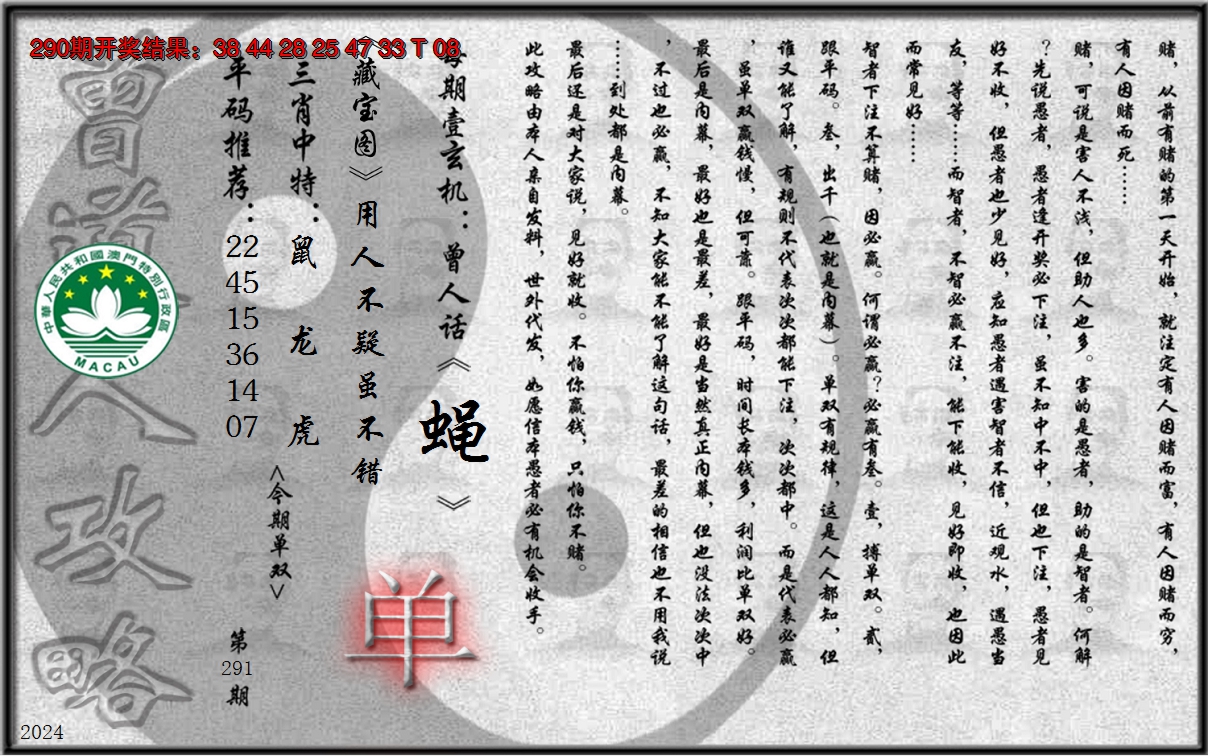 290期开奖结果：38 44 28 25 47 33 T 08
赌，从前有赌的第一天开始，就注定有人因赌而富，有人因赌而穷，
有人因赌而死……
赌，可说是害人不浅，但助人也多。害的是愚者，助的是智者。何解
？先说愚者，愚者逢开奖必下注，虽不知中不中，但也下注，愚者见
好不收，但愚者也少见好，应知愚者遇害智者不信，近观水，遇愚当
友，等等……而智者，不智必赢不注，能下能收，见好即收，也因此
而常见好……
智者下注不算赌，因必赢。何谓必赢？必赢有叁。壹，搏单双。贰，
跟平码。叁，出千（也就是内幕）。单双有规律，这是人人都知，但
谁又能了解，有规则不代表次次都能下注，次次都中。而是代表必赢
，虽单双赢钱慢，但可靠。跟平码，时间长本钱多，利润比单双好。
最后是内幕，最好也是最差，最好是当然真正内幕，但也没法次次中
，不过也必赢，不知大家能不能了解这句话，最差的相信也不用我说
……到处都是内幕。
最后还是对大家说，见好就收。不怕你赢钱，只怕你不赌。
此攻略由本人亲自发料，世外代发，如愿信本愚者必有机会收手。
每期壹玄机：曾人话《蝇》
《藏宝图》用人不疑虽不错
三肖中特：鼠 龙 虎
<今期单双>
单
平码推荐：
22
45
15
36
14
07
第
291
期
曾道人攻略
中華人民共和國澳門特別行政區
MACAU
2024